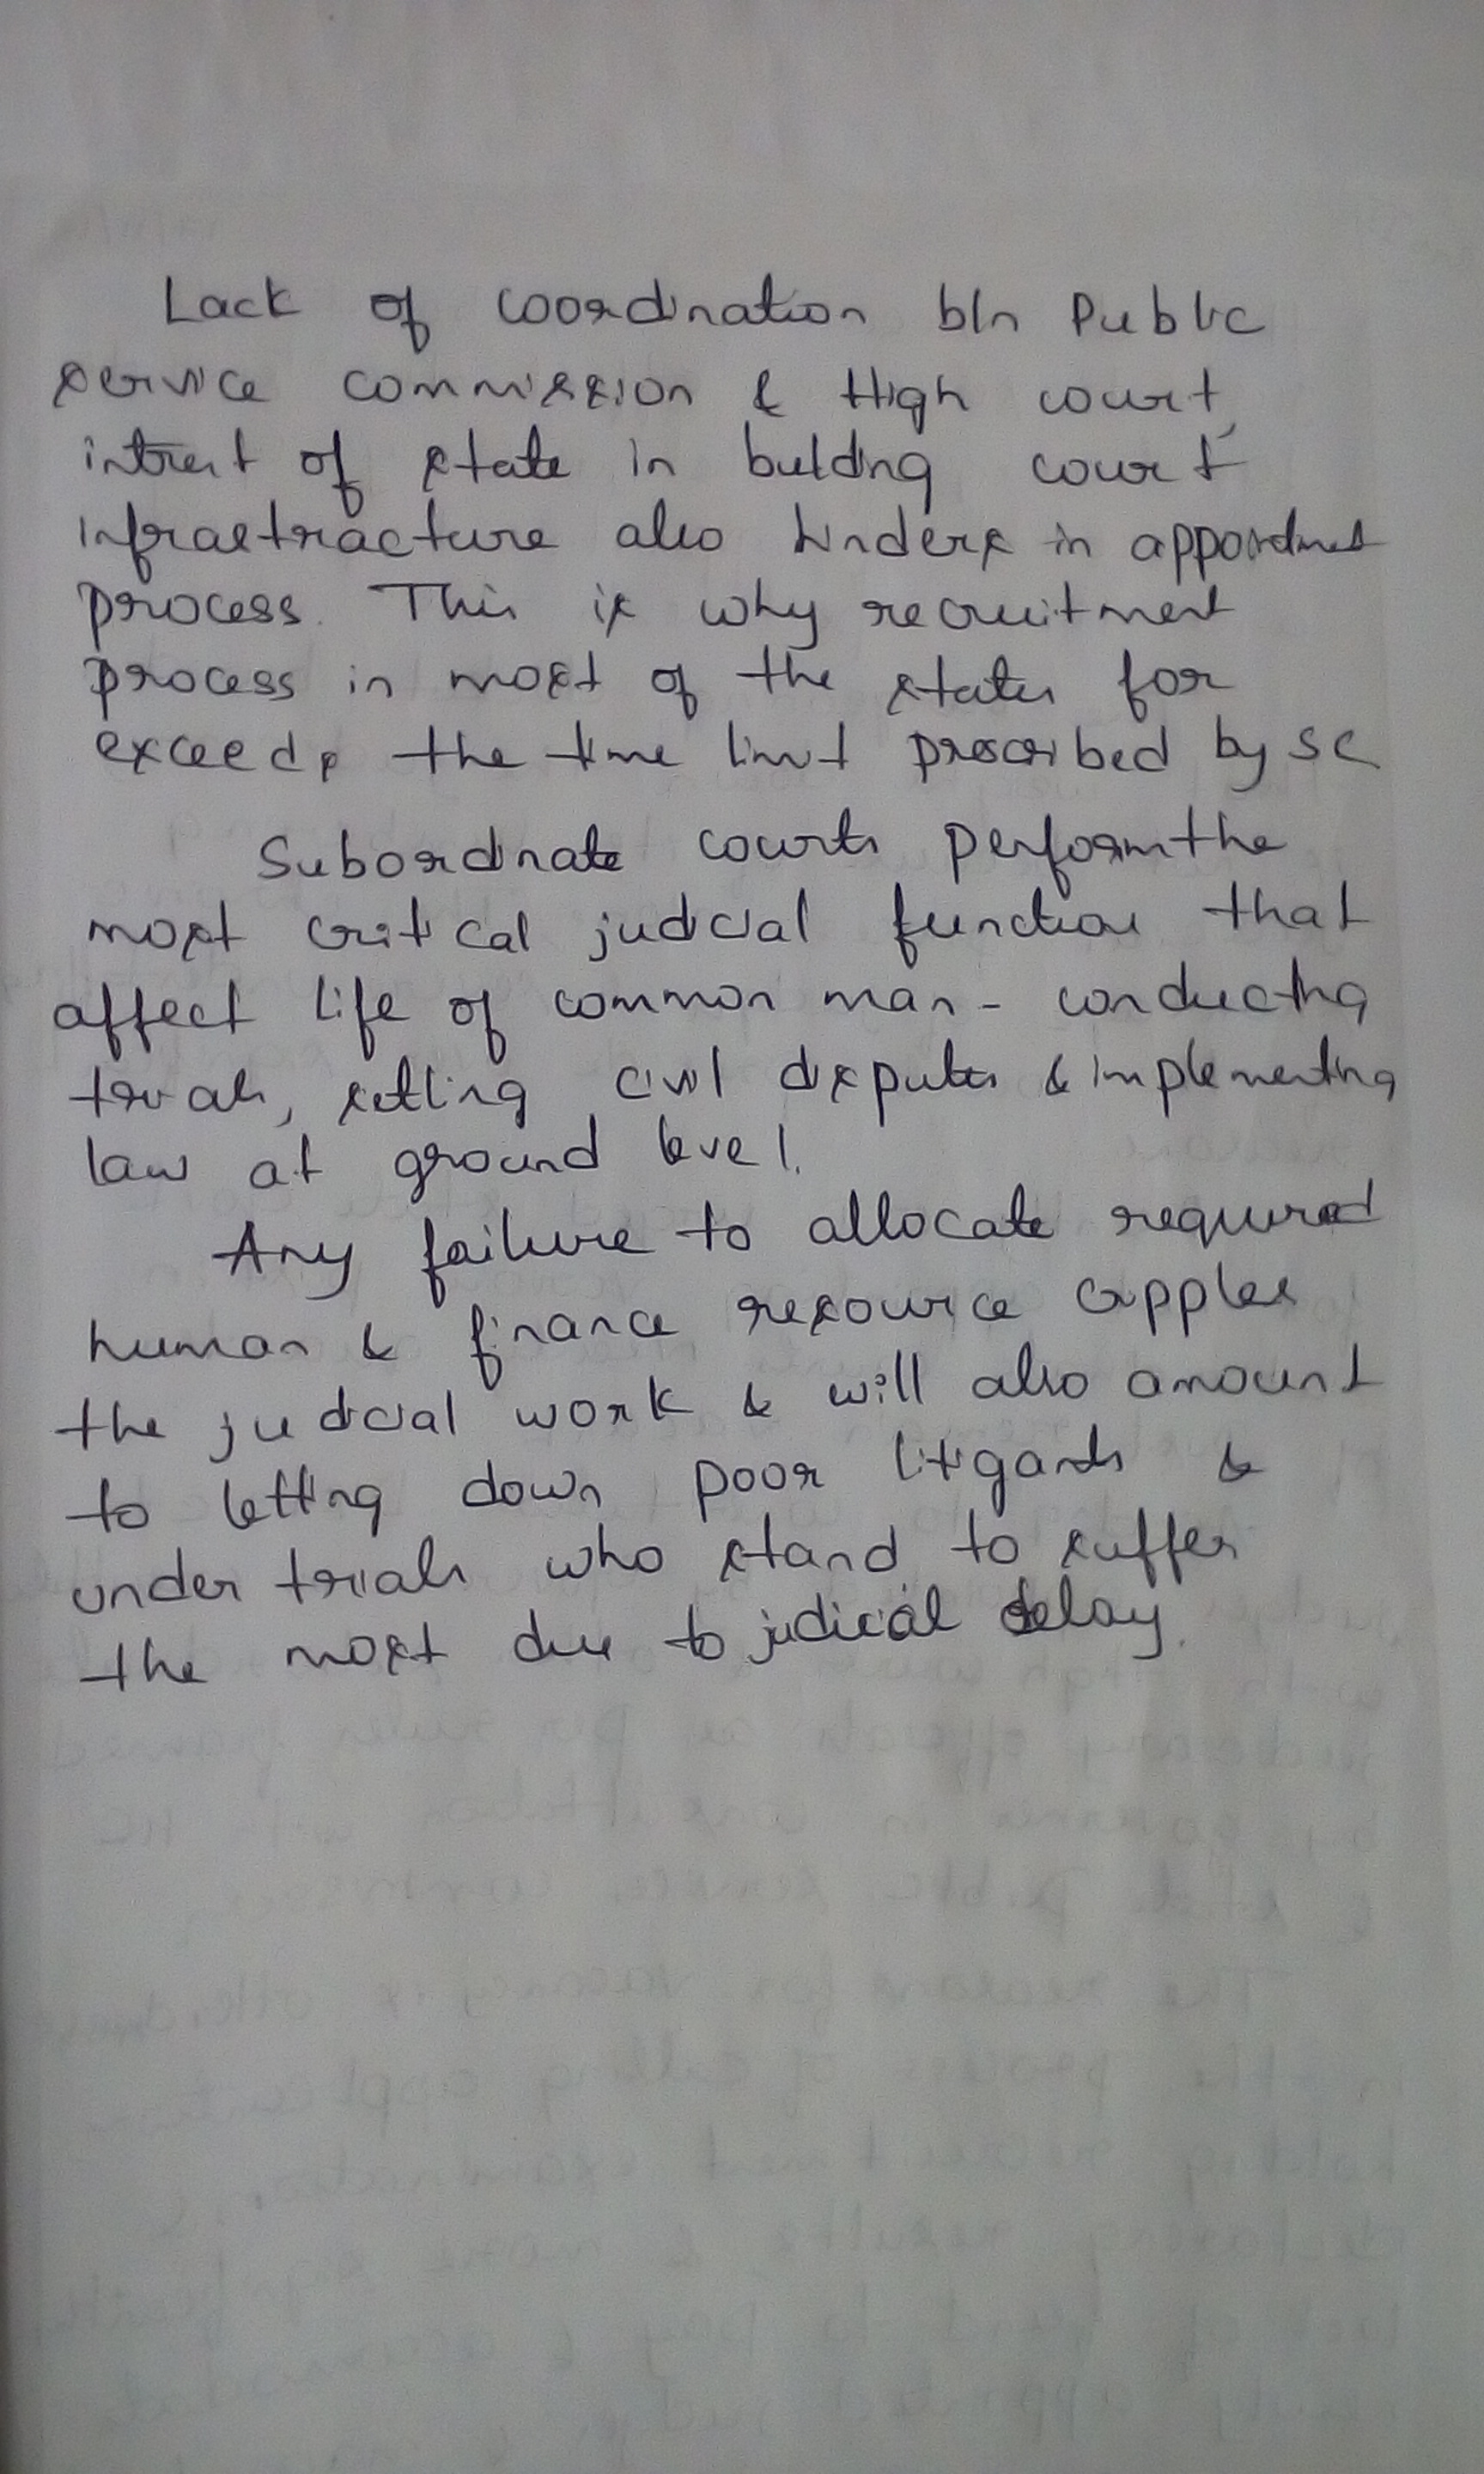 Lack of coordination b/n Public
service commission & High court,
intrest of state in buldng court
infrastracture also hinders in appointment
process. This is why recruitment
process in most of the states for
exceeds the time limit prescribed by SC
Subordinate courts perform the
most critical judicial function that
affect life of common man - conducting
trials, setling civil disputes & implementing
law at ground level.
Any failure to allocate required
human & finance resource cripples
the judicial work & will also amount
to letting down poor litigants &
under trials who stand to suffer
the most due to judicial delay.